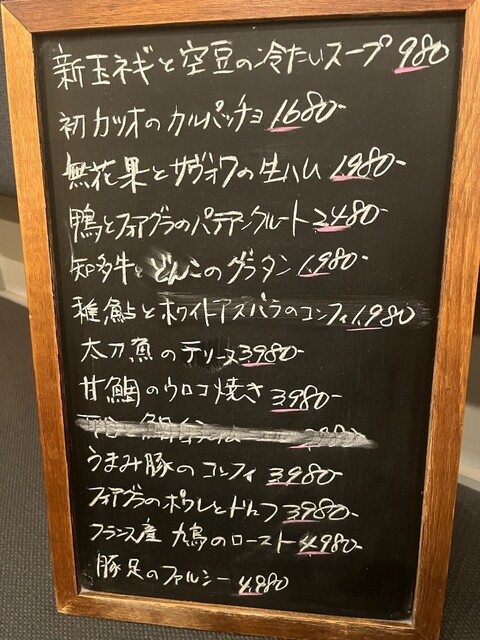 新玉ネギと空豆の冷たいスープ 980
初カツオのカルパッチョ 1680-
無花果とサヴォワの生ハム 1980-
鴨とフォアグラのパテアンクルート 2480-
知多牛とどんこのグラタン 1,980-
稚鮎とホワイトアスパラのコンフィ 1,980
太刀魚のテリーヌ 3980-
甘鯛のウロコ焼き 3,980-
うまみ豚のコンフィ 3,980-
フォアグラのポワレとトリュフ 3980-
フランス産 鳩のロースト 4,980-
豚足のファルシー 4,980